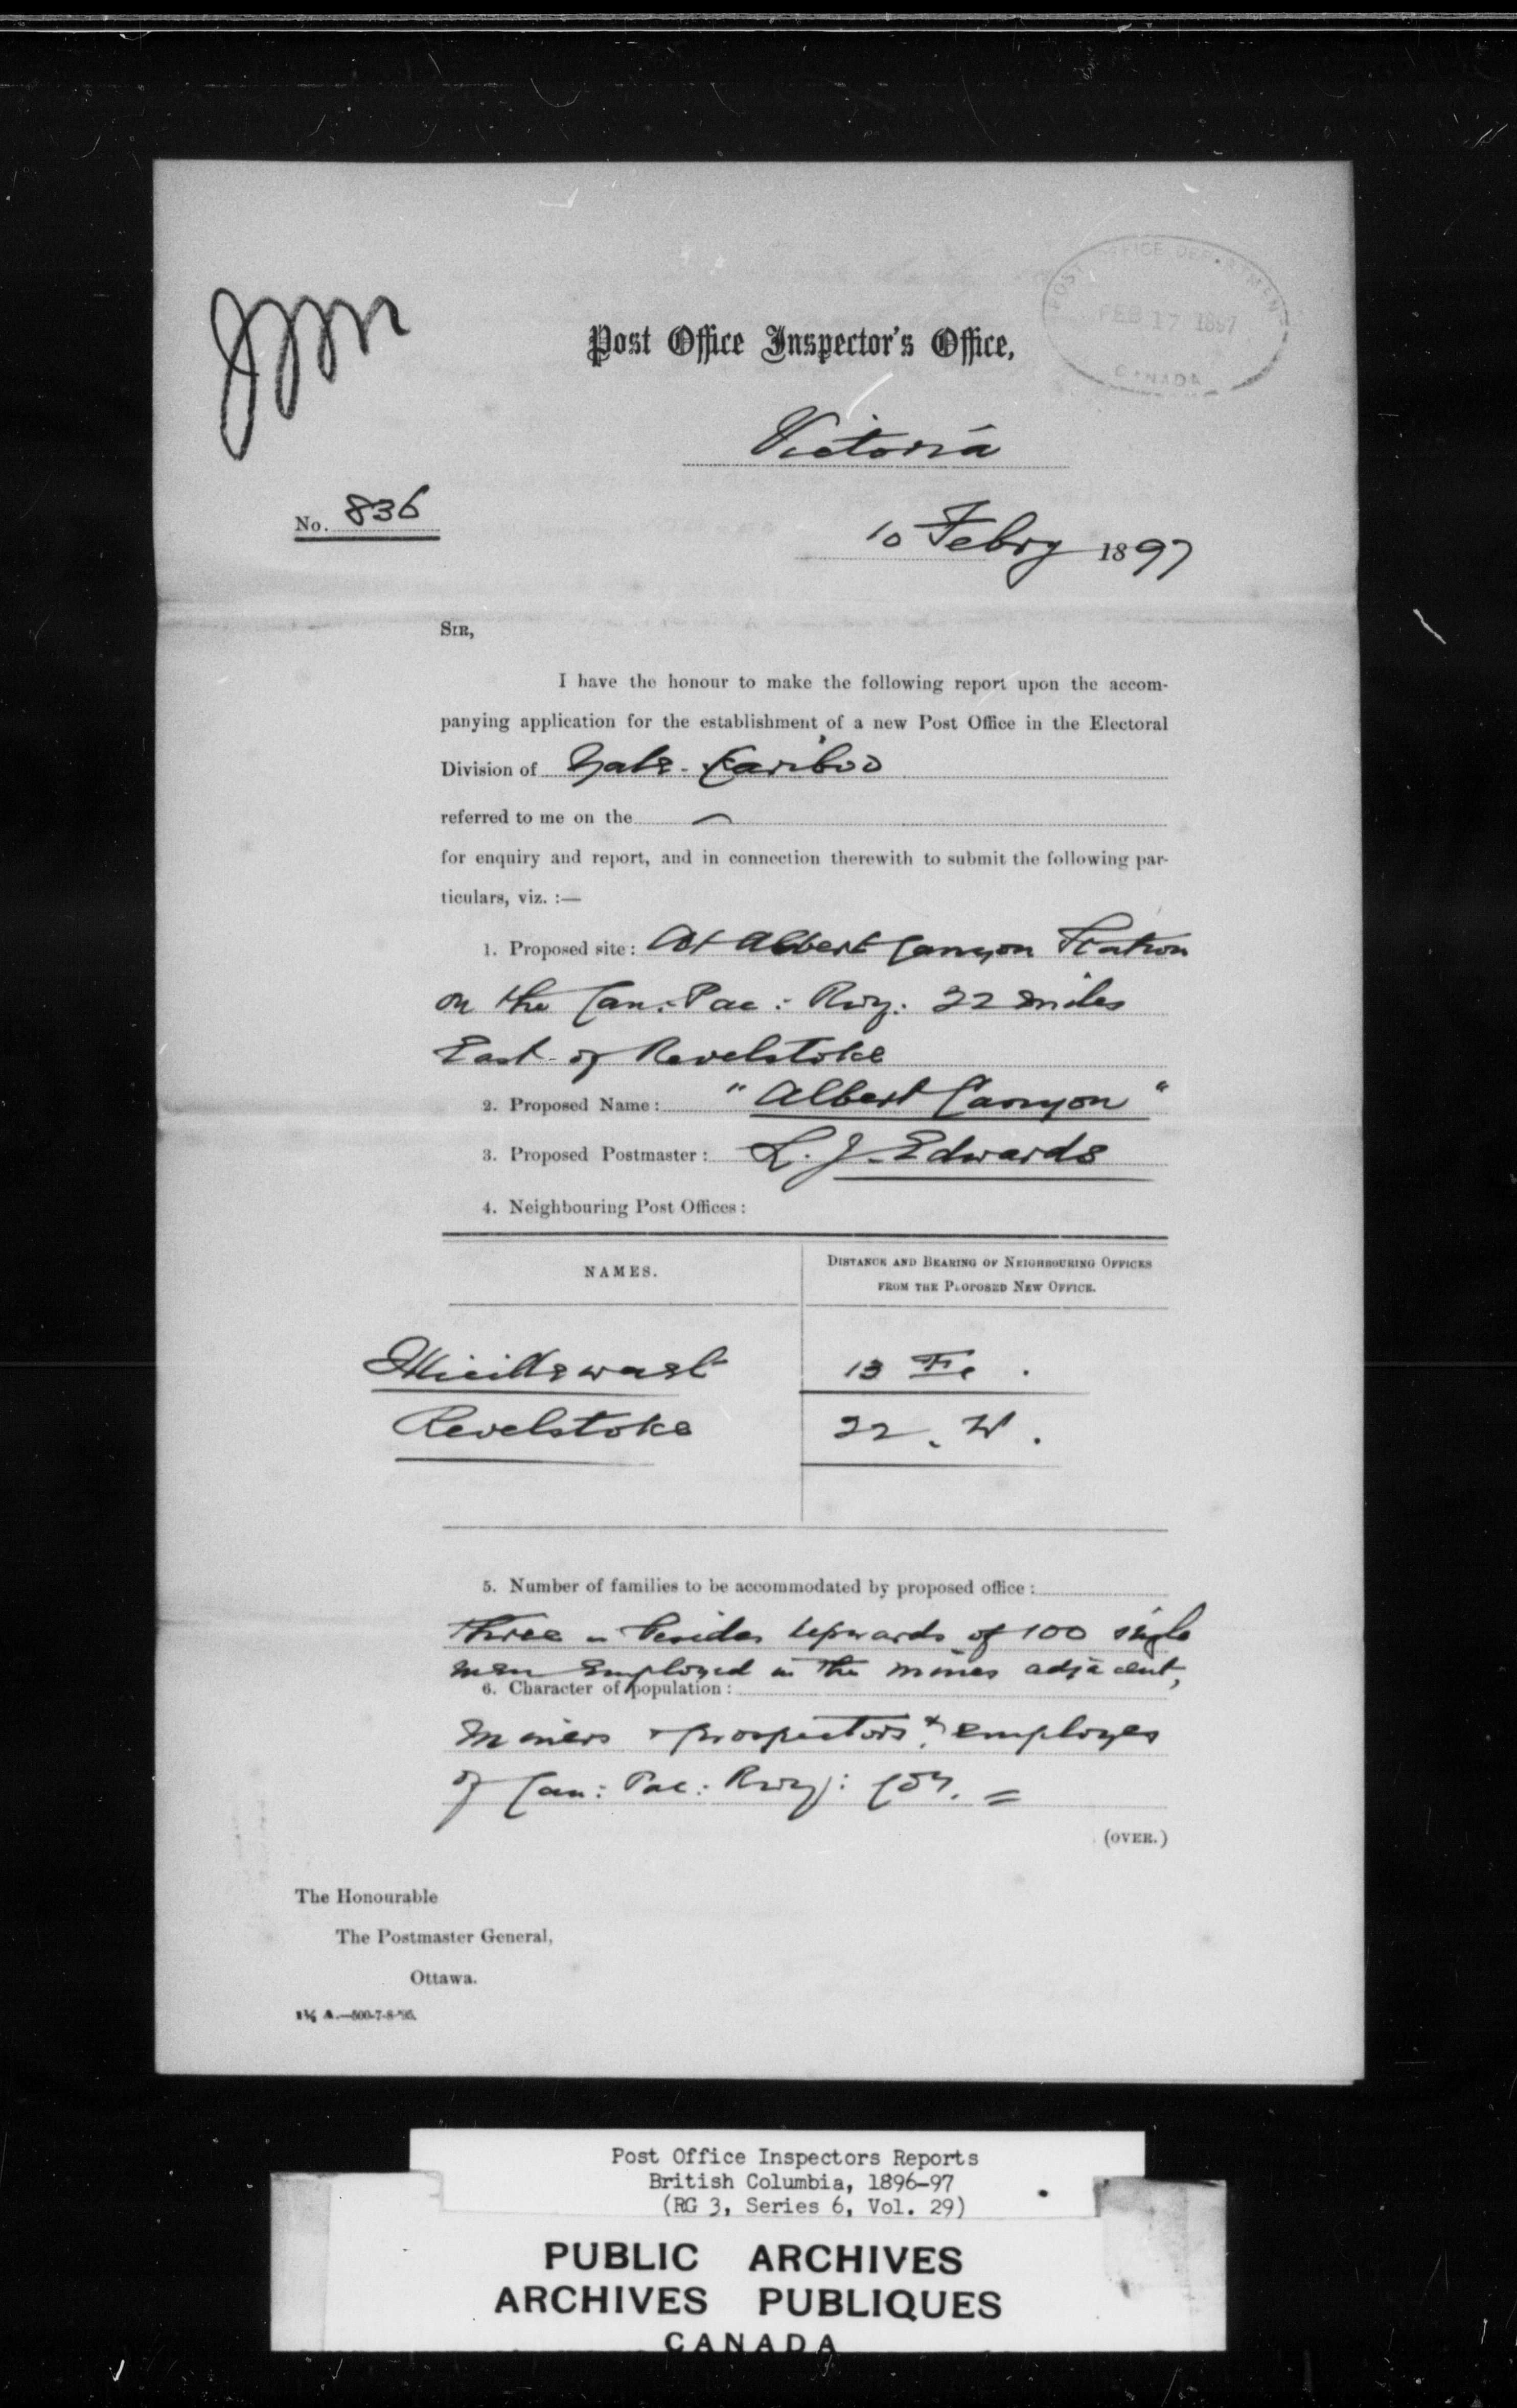 POST OFFICE DEPARTMENT
FEB 17 1897
CANADA
Post Office Inspector's Office,
Victoria
No. 836
10 Febry 1897
SIR,
I have the honour to make the following report upon the accom-
panying application for the establishment of a new Post Office in the Electoral
Division of Yale-Cariboo
referred to me on the
for enquiry and report, and in connection therewith to submit the following par-
ticulars, viz. :—
1. Proposed site: At Albert Canyon Station
on the Can: Pac: Rwy: 22 miles
East of Revelstoke
2. Proposed Name: "Albert Canyon"
3. Proposed Postmaster: L. J. Edwards
4. Neighbouring Post Offices:
NAMES.
DISTANCE AND BEARING OF NEIGHBOURING OFFICES
FROM THE PROPOSED NEW OFFICE.
Illicillewaet 13 E.
Revelstoke 22. W.
5. Number of families to be accommodated by proposed office:
Three - besides upwards of 100 single
men employed in the mines adjacent,
6. Character of population:
Miners & prospectors & employes
of Can: Pac: Rwy: Coy. =
(OVER.)
The Honourable
The Postmaster General,
Ottawa.
1¼ A.—500-7-8-'95.
Post Office Inspectors Reports
British Columbia, 1896-97
(RG 3, Series 6, Vol. 29)
PUBLIC ARCHIVES
ARCHIVES PUBLIQUES
CANADA